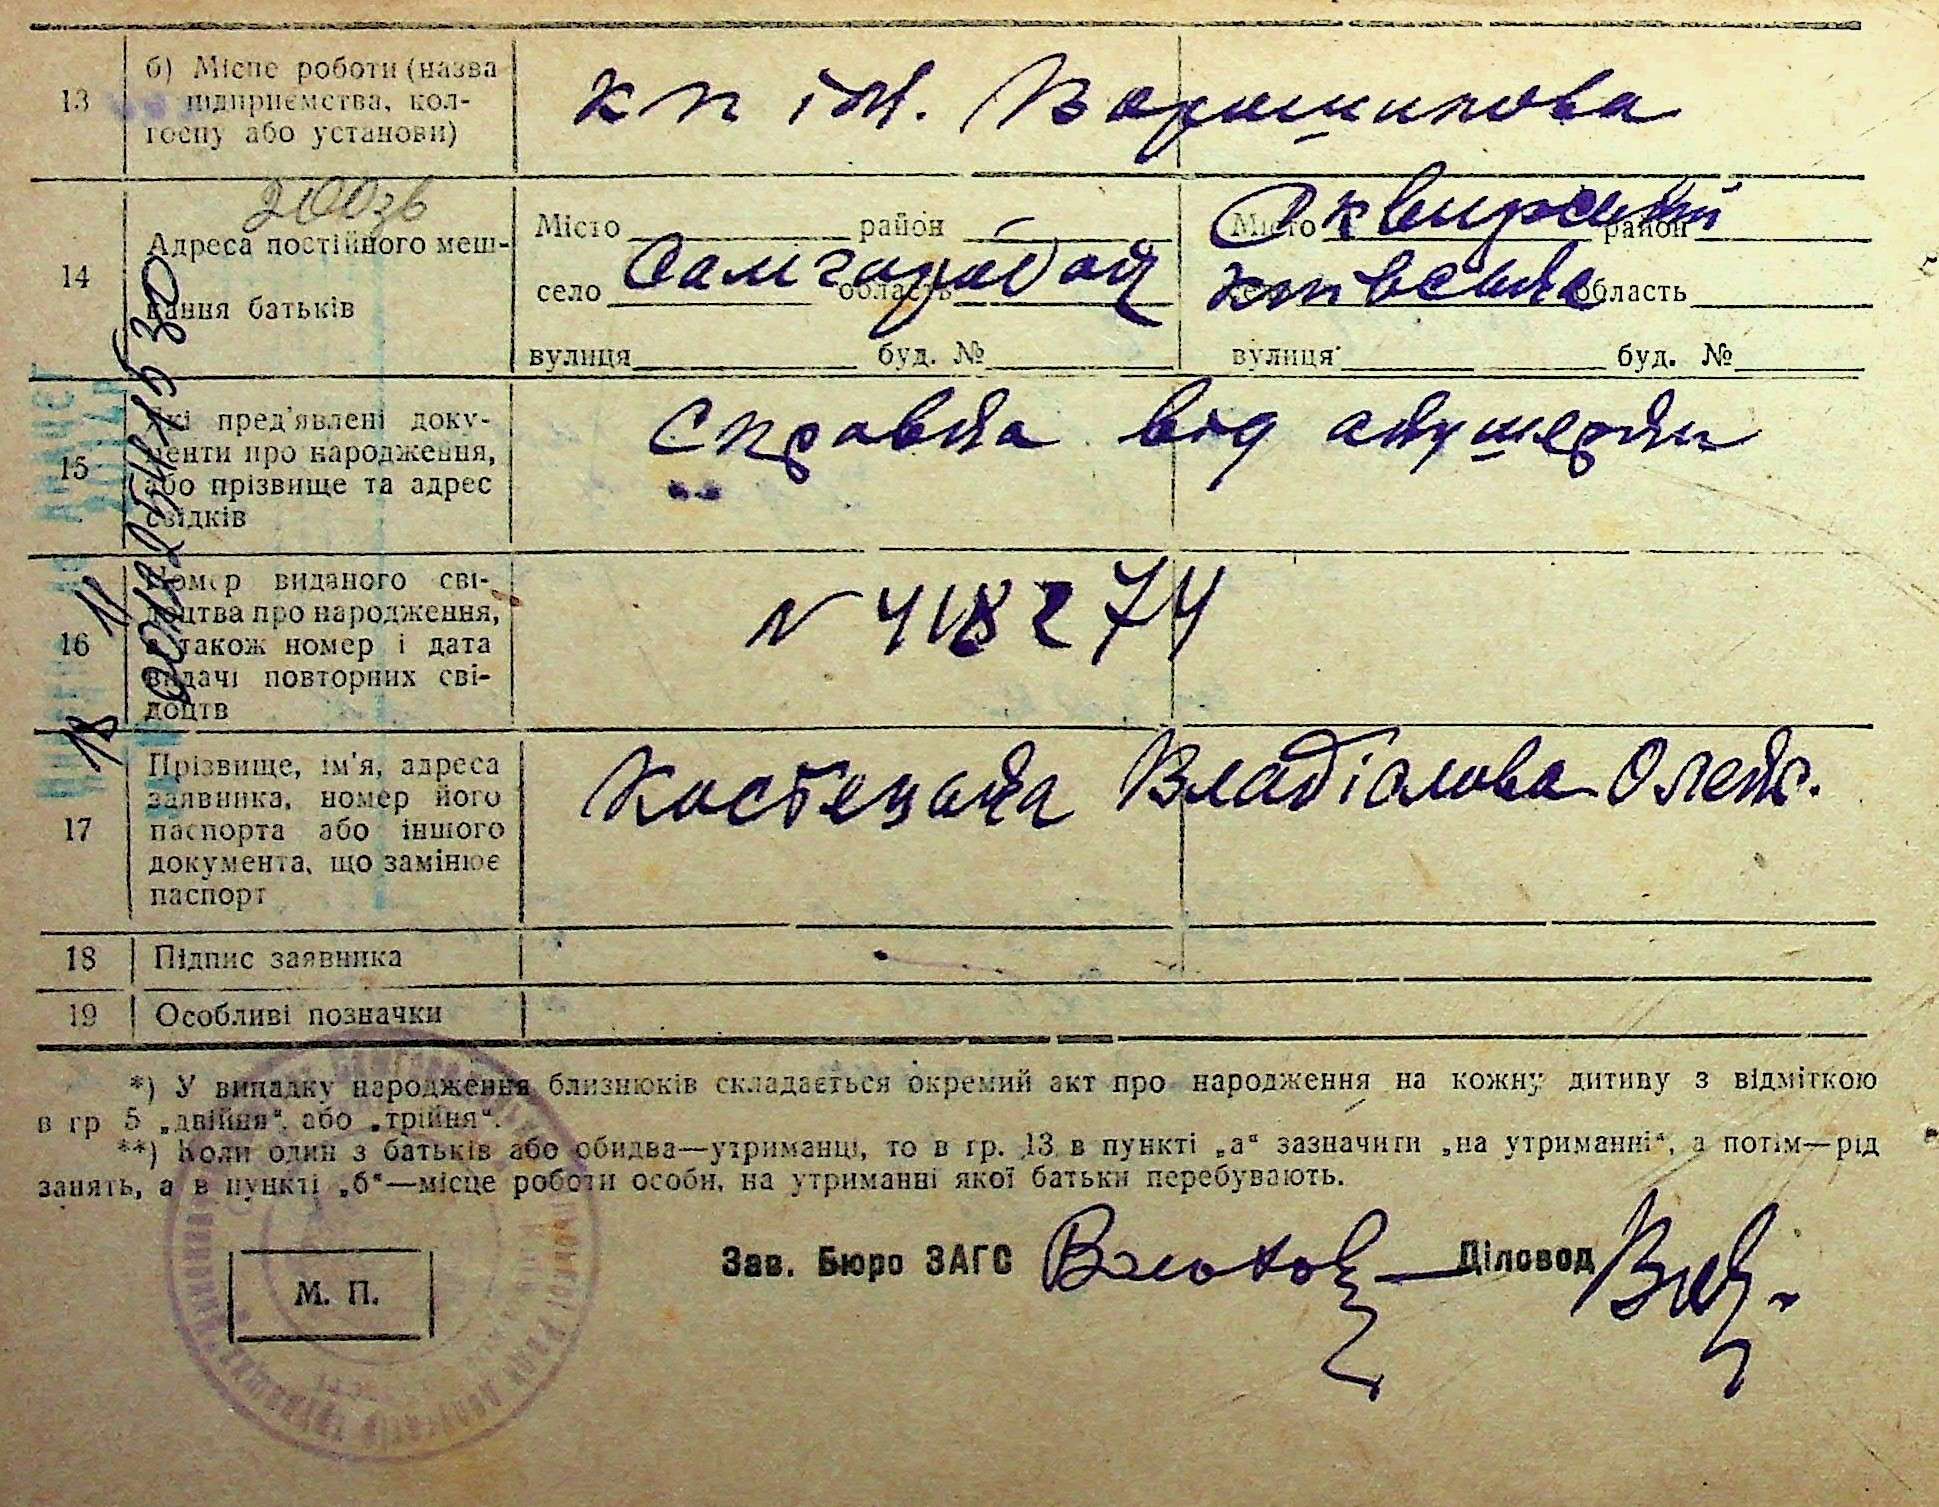 13
б) Місце роботи (назва
підприємства, кол-
госпу або установи)
кп ім. Ворошилова
14
Адреса постійного меш-
кання батьків
Місто район
село Самгородок область
вулиця буд. №
Місто Сквирський район
село Київська область
вулиця буд. №
15
Які пред'явлені доку-
менти про народження,
або прізвище та адрес
свідків
Справка від акушерки
16
Номер виданого сві-
доцтва про народження,
а також номер і дата
видачі повторних сві-
доцтв
N 418274
17
Прізвище, ім'я, адреса
заявника, номер його
паспорта або іншого
документа, що замінює
паспорт
Костецька Владіслова Олекс.
18
Підпис заявника
19
Особливі позначки
*) У випадку народження близнюків складається окремий акт про народження на кожну дитину з відміткою
в гр 5 „двійня“ або „трійня“.
**) Коли один з батьків або обидва—утриманці, то в гр. 13 в пункті „а“ зазначити „на утриманні“, а потім—рід
занять, а в пункті „б“—місце роботи особи, на утриманні якої батьки перебувають.
Зав. Бюро ЗАГС
Діловод
М. П.